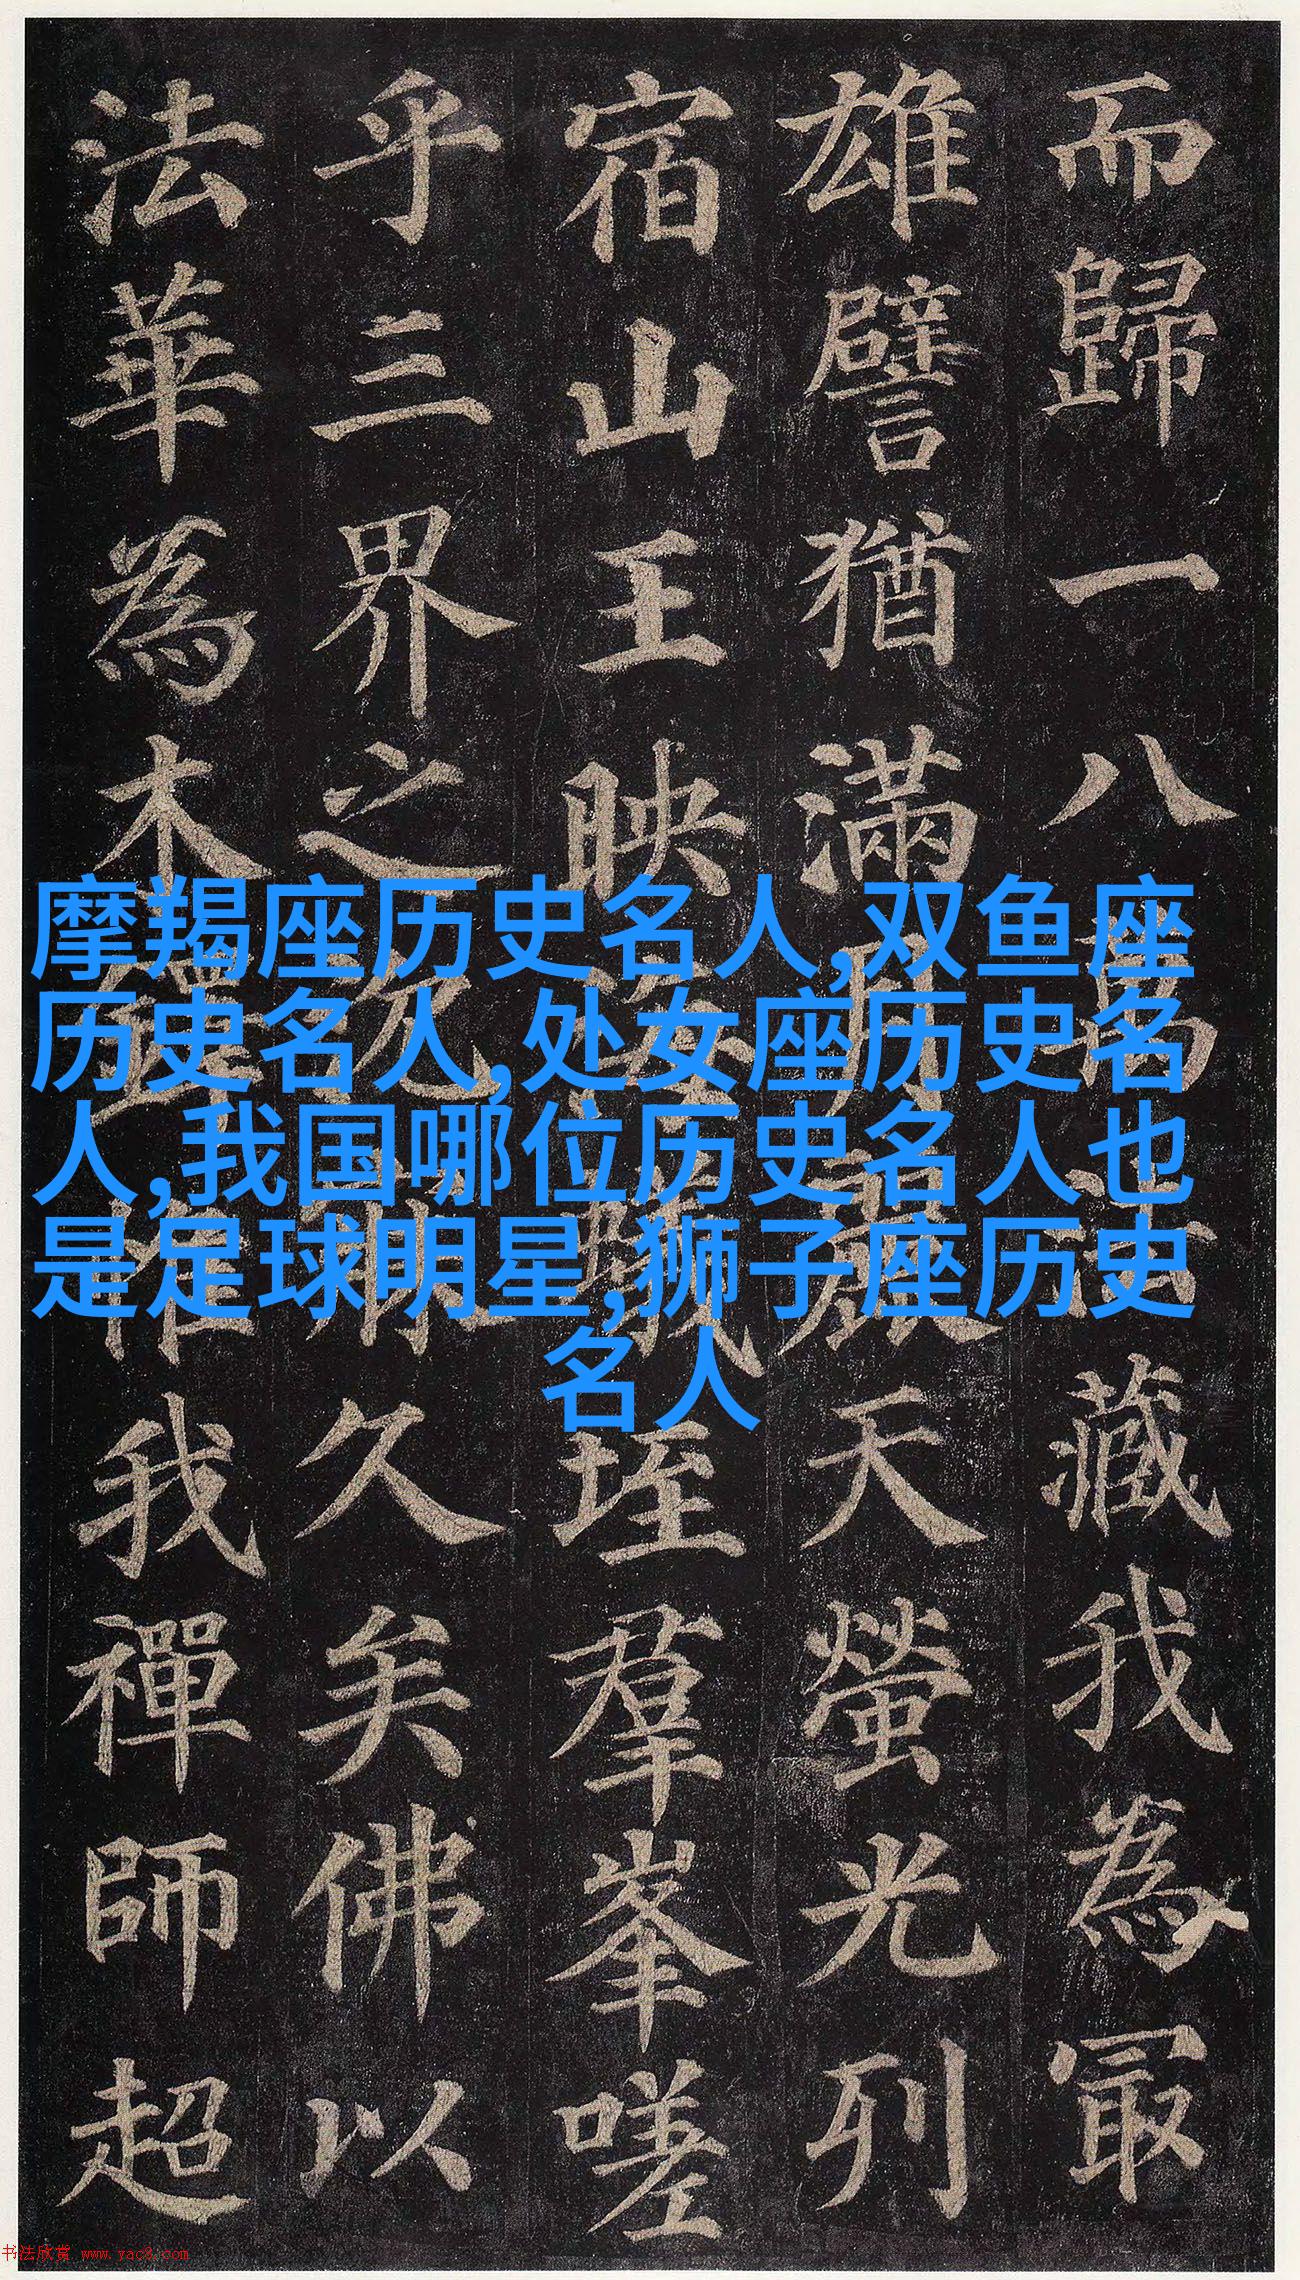 而歸一八萬法藏我為冣
雄譬猶滿月麗天螢光列
宿山王映海蟻垤羣峯嗟
乎三界之沉寐久矣佛以
法華為木鐸惟我禪師超
摩羯座历史名人,双鱼座
历史名人,处女座历史名
人,我国哪位历史名人也
是足球明星,狮子座历史
名人
书法欣赏 www.yac8.com